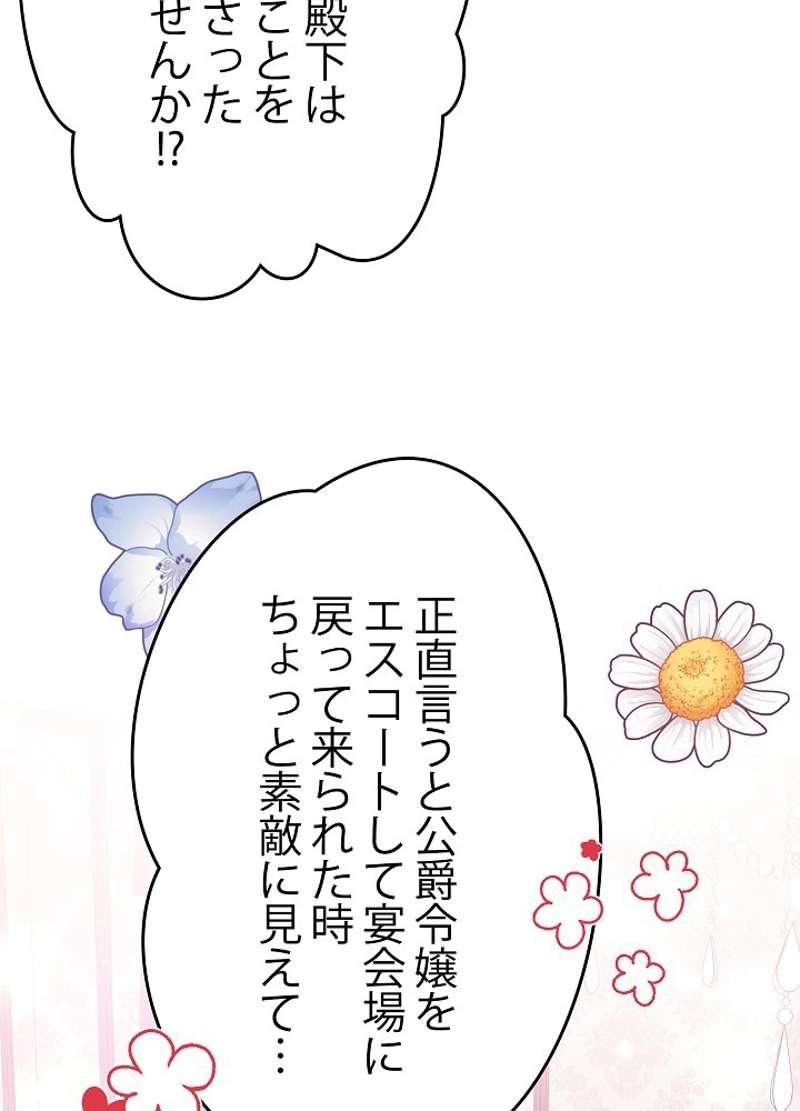 殿下は
ことを
さった
せんか!?
正直言うと公爵令嬢を
エスコートして宴会場に
戻って来られた時
ちょっと素敵に見えて…